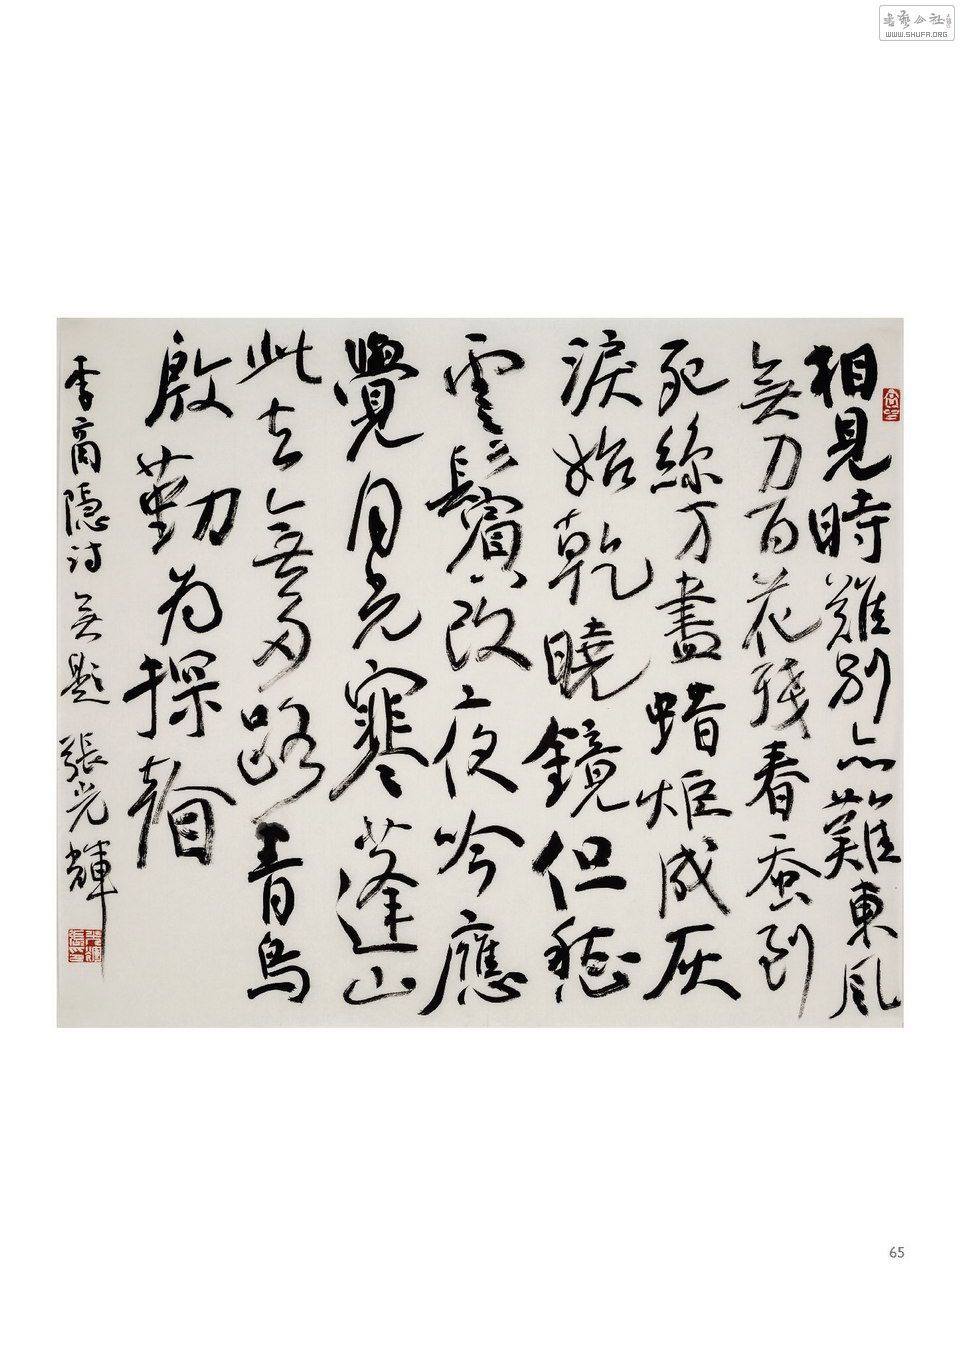 書藝公社
WWW.SHUFA.ORG
相見時難別亦難東風
無力百花殘春蚕到
死絲方盡蜡炬成灰
淚始乾曉鏡但愁
雲鬢改夜吟應
覺月光寒蓬山
此去無多路青鳥
殷勤为探看
李商隐诗無题張光輝
65